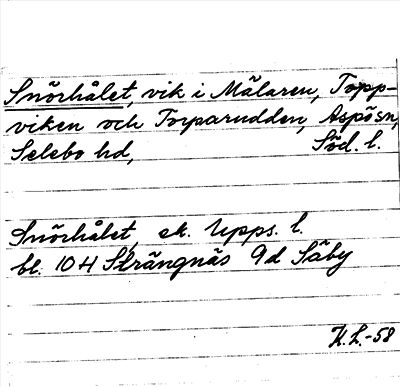 Snörhålet, vik i Mälaren, Topp-
viken och Torparudden, Aspösn,
Selebo hd, Söd. l.
Snörhålet, ek. Upps. l.
bl. 10 H Strängnäs 9d Säby
K.L.-58